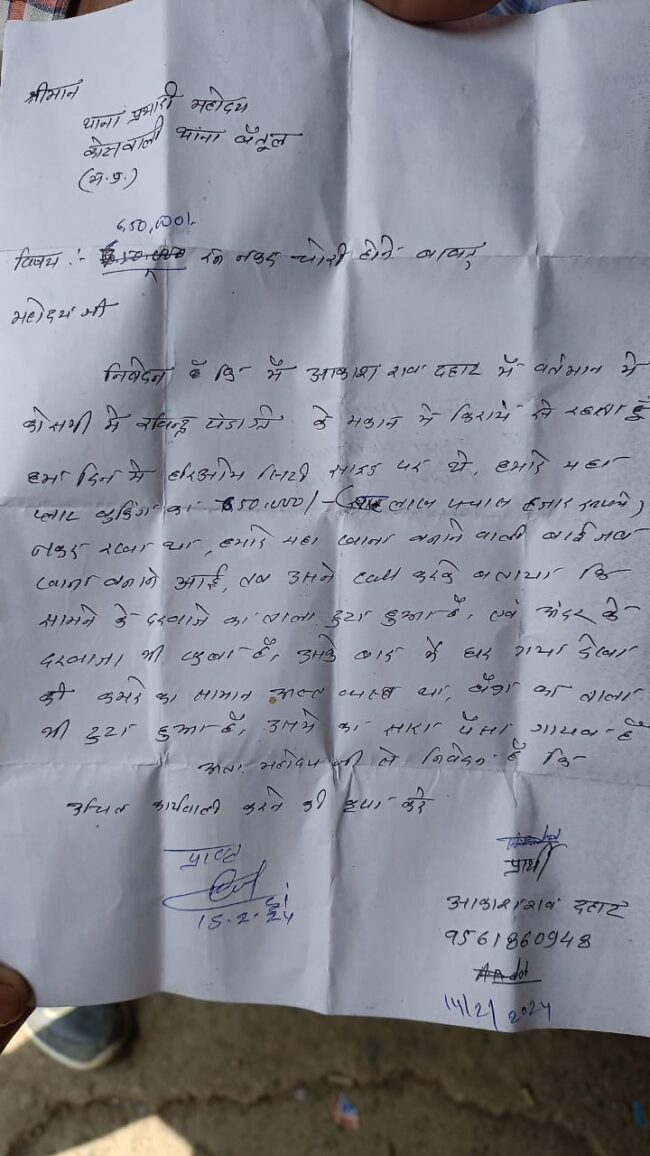 श्रीमान
थाना प्रभारी महोदय
कोतवाली थाना बैतूल
(म.प्र.)
6,50,000/-
विषय :- रु नकद चोरी होने बाबत्
महोदय जी
निवेदन है कि मैं आकाश राव दहाट मैं वर्तमान मे
कोसमी मे रविन्द्र के मकान मे किराये से रहता हूँ
हम दिन मे हरिओम सिटी साइड पर थे, हमारे यहा
प्लाट बुकिंग का 650,000/- ( लाख पचास हजार रुपये)
नकद रखा था, हमारे यहा खाना बनाने वाली बाई जब
खाना बनाने आई, तब उसने call करके बताया कि
सामने के दरवाजे का ताला टुटा हुआ है, एवं अंदर के
दरवाजा भी खुला है, उसके बाद मे घर गया देखा
की कमरे का सामान अस्त व्यस्त था, का ताला
भी टुटा हुआ है, उसमे का सारा पैसा गायब है
अतः महोदय जी से निवेदन है कि
उचित कार्यवाही करने की कृपा करे
प्राप्त
15.2.24
प्रार्थी
आकाश राव दहाट
9561860948
14/2/2024